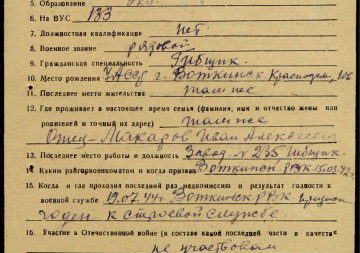 5. Образование
6. На ВУС 133
7. Должностная квалификация нет
8. Военное звание рядовой
9. Гражданская специальность Гибщик
10. Место рождения УАССР г. Воткинск
11. Последнее место жительства там же
12. Где проживает в настоящее время семья (фамилия, имя и отчество жены или
родителей и точный их адрес) там же
Отец - Макаров Иван Алексеевич
13. Последнее место работы и должность Завод № 235 Гибщик
14. Каким райгорвоенкоматом и когда призван Воткинск РВК 15.03.42
15. Когда и где проходил последний раз медкомиссию и результат годности к
военной службе 19.07.44 г. Воткинск РВК
годен к строевой службе.
16. Участие в Отечественной войне (в составе какой последней части в качестве
не участвовал